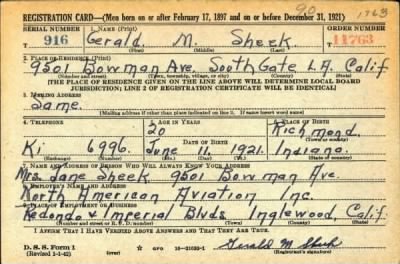 90 1763
REGISTRATION CARD—(Men born on or after February 17, 1897 and on or before December 31, 1921)
SERIAL NUMBER 1. NAME (Print) ORDER NUMBER
916 Gerald M. Sheek 11763
(First) (Middle) (Last)
2. PLACE OF RESIDENCE (Print)
9501 Bowman Ave. South Gate L.A. Calif
(Number and street) (Town, township, village, or city) (County) (State)
[THE PLACE OF RESIDENCE GIVEN ON THE LINE ABOVE WILL DETERMINE LOCAL BOARD
JURISDICTION; LINE 2 OF REGISTRATION CERTIFICATE WILL BE IDENTICAL]
3. MAILING ADDRESS
Same.
[Mailing address if other than place indicated on line 2. If same insert word same]
4. TELEPHONE 5. AGE IN YEARS 6. PLACE OF BIRTH
20 Richmond
DATE OF BIRTH (Town or county)
Ki 6996. June 11, 1921. Indiana.
(Exchange) (Number) (Mo.) (Day) (Yr.) (State or country)
7. NAME AND ADDRESS OF PERSON WHO WILL ALWAYS KNOW YOUR ADDRESS
Mrs. Jane Sheek 9501 Bowman Ave.
8. EMPLOYER'S NAME AND ADDRESS
North American Aviation Inc.
9. PLACE OF EMPLOYMENT OR BUSINESS
Redondo & Imperial Blvds. Inglewood, Calif.
(Number and street or R. F. D. number) (Town) (County) (State)
I AFFIRM THAT I HAVE VERIFIED ABOVE ANSWERS AND THAT THEY ARE TRUE.
D. S. S. Form 1 GPO 16—21630-1 Gerald M Sheek
(Revised 1-1-42) (Registrant's signature)